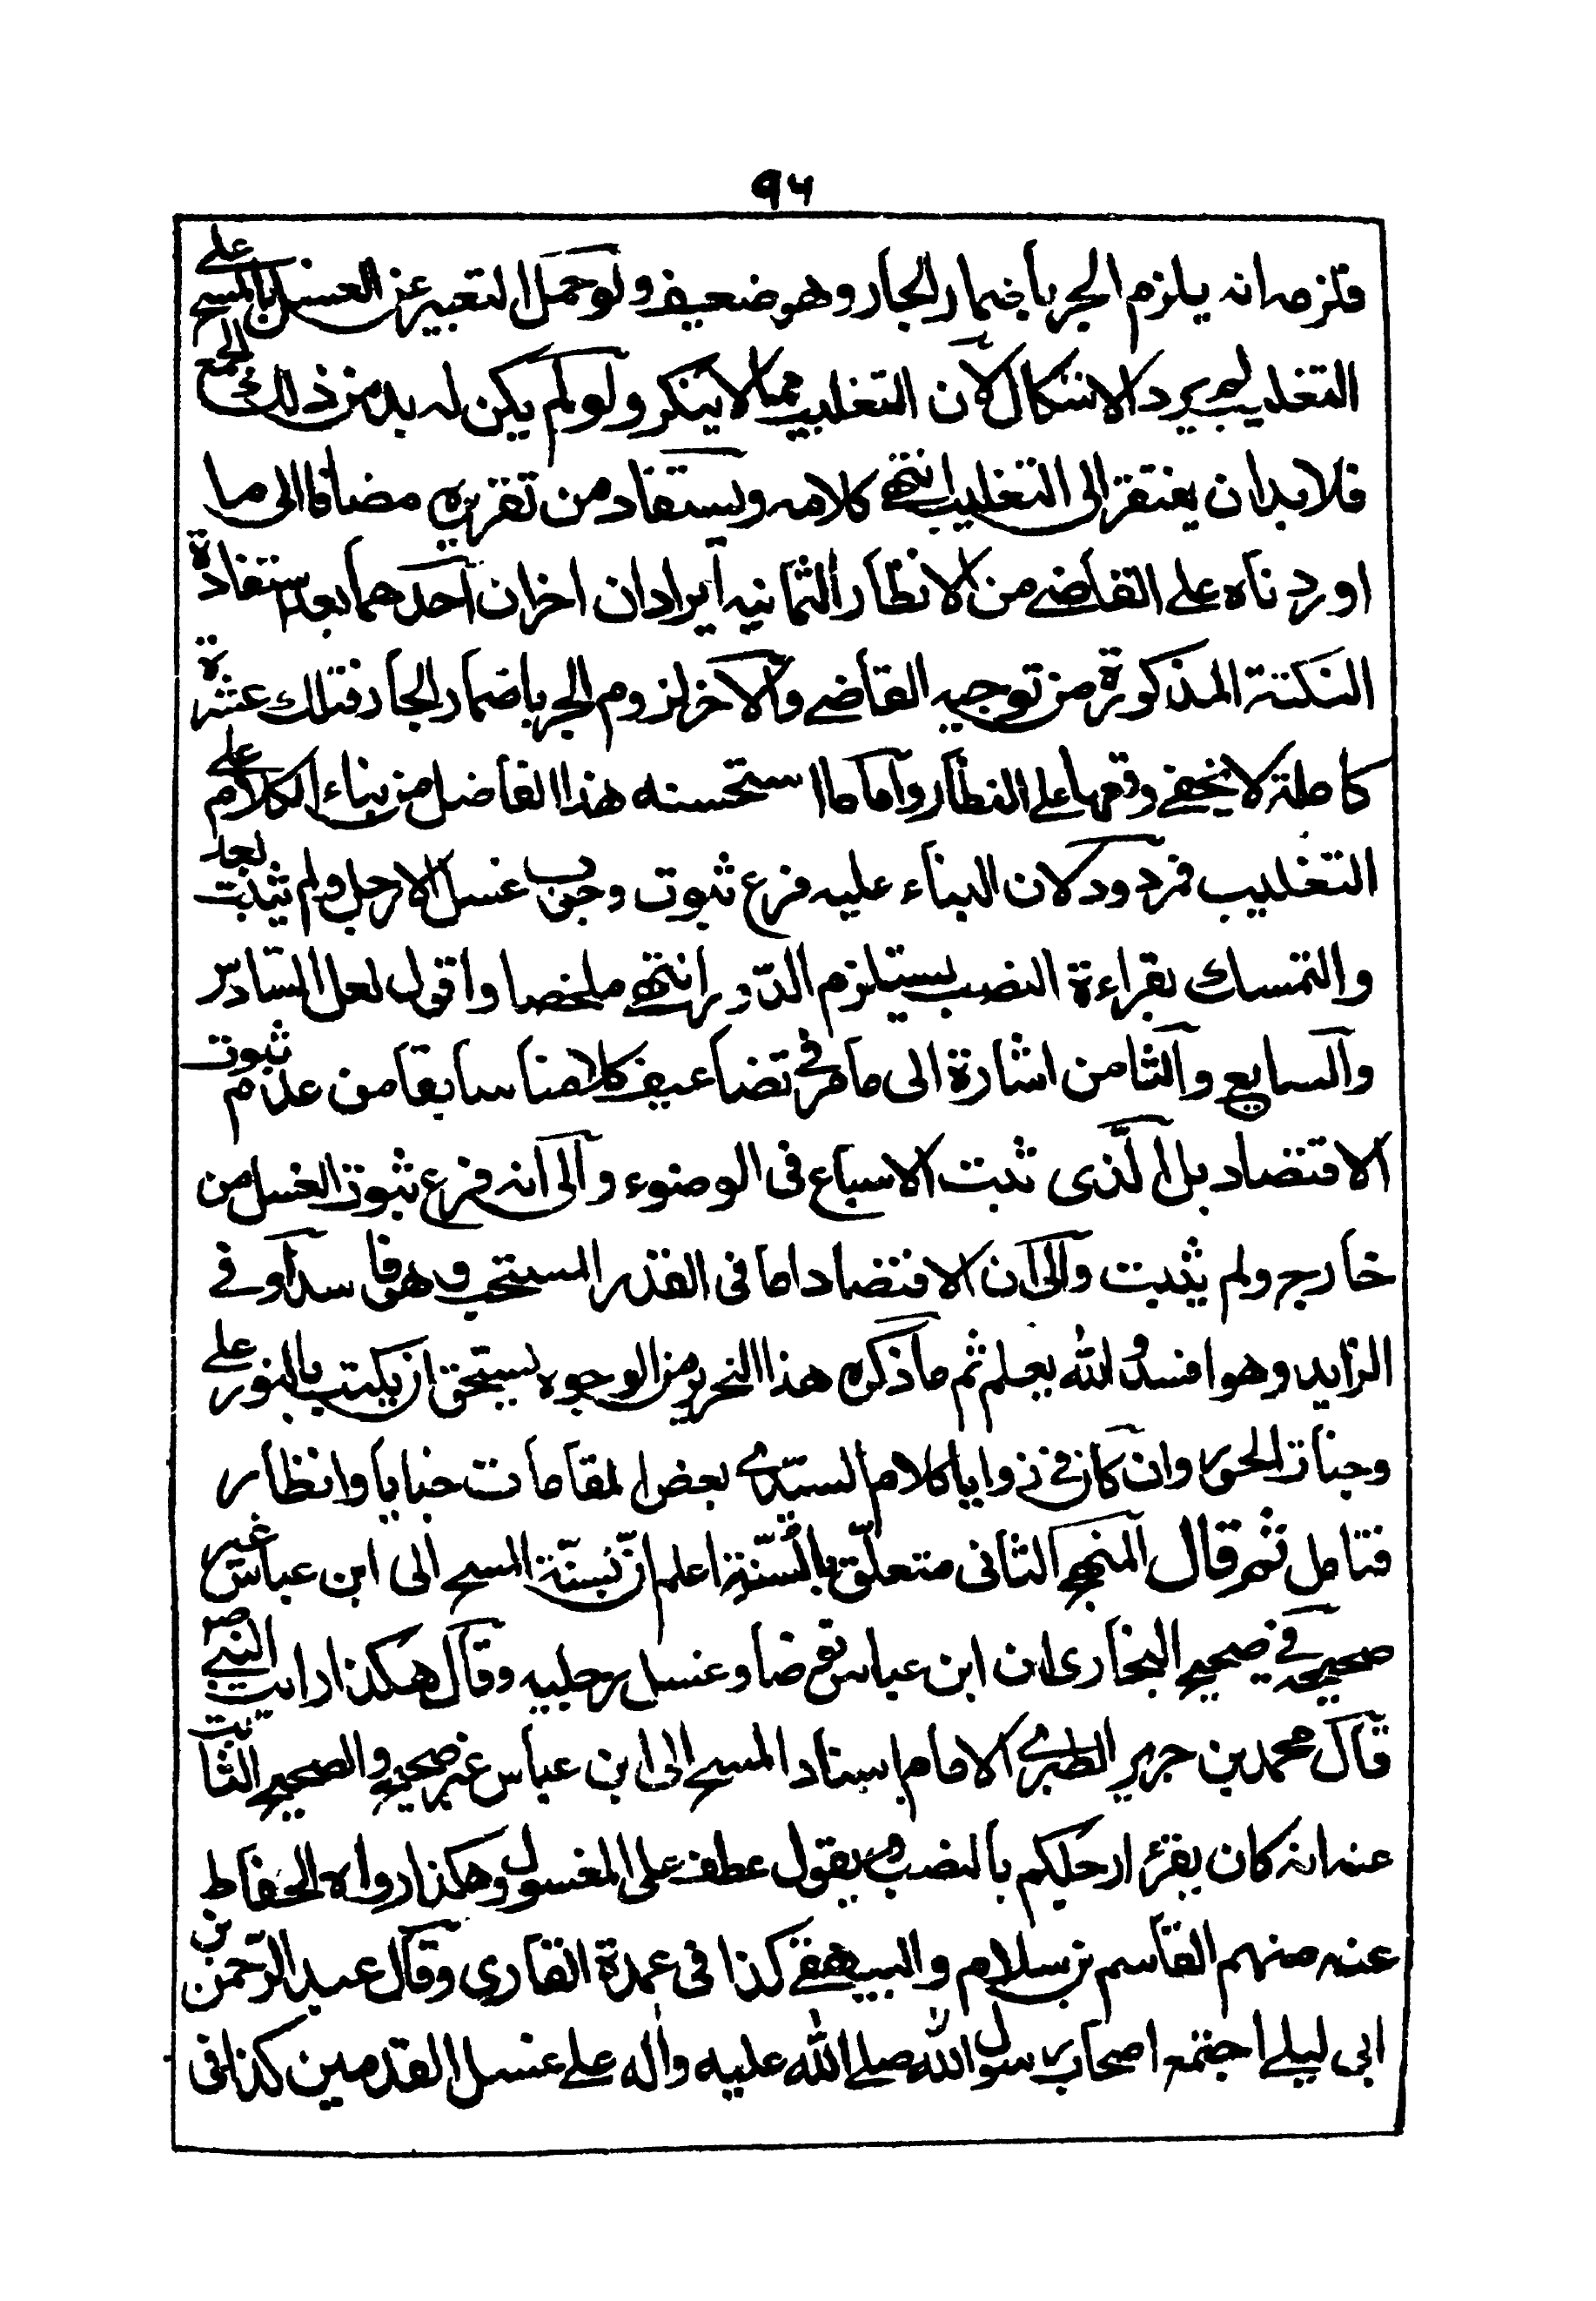 ٩٦
فلزمه انه يلزم الجر باضمار الجار وهو ضعيف ولو حمل التعبير عن الغسل بالمسح على
التغليب لم يرد الاشكال لان التغليب مما لا ينكر ولو لم يكن له بد من ذلك الجمع
فلا بد ان يفتقر الى التغليب انتهى كلامه ويستفاد من تقريره مضافا الى ما
اوردناه على القاضي من الانظار الثمانيه ايرادان اخران احدهما بعد استفادة
النكتة المذكورة من توجيه القاضي والاخر لزوم الجر باضمار الجار فتلك عشرة
كاملة لا يخفى وقعها على النظار واما ما استحسنه هذا الفاضل من بناء الكلام على
التغليب فمردود لان البناء عليه فرع ثبوت وجوب غسل الارجل ولم يثبت بعد
والتمسك بقراءة النصب يستلزم الدور انتهى ملخصا واقول لعل السادس
والسابع والثامن اشارة الى ما مر في تضاعيف كلامنا سابقا من عدم ثبوت
الاقتصاد بل الذى ثبت الاسباغ فى الوضوء والى انه فرع ثبوت الغسل من
خارج ولم يثبت والى ان الاقتصاد اما فى القدر المستحب وهو فاسد او فى
الزايد وهو افسد والله يعلم ثم ما ذكره هذا النحرير من الوجوه يستحق ان يكتب بالنور على
وجنات الحور وان كان في زوايا كلام السيد في بعض المقامات خبايا وانظار
فتامل ثم قال المنهج الثانى متعلق بالسنة اعلم ان نسبة المسح الى ابن عباس غير
صحيحة في صحيح البخارى ان ابن عباس توضا وغسل رجليه وقال هكذا رايت النبي ص
قال محمد بن جرير الطبري الامام اسناد المسح الى ابن عباس غير صحيح والصحيح الثابت
عنه انه كان يقرء ارجلكم بالنصب ويقول عطف على المغسول وهكذا رواه الحفاظ
عنه منهم القاسم بن سلام والبيهقي كذا فى عمدة القاري وقال عبد الرحمن بن
ابى ليلى اجتمع اصحاب رسول الله صلى الله عليه واله على غسل القدمين كذا فى